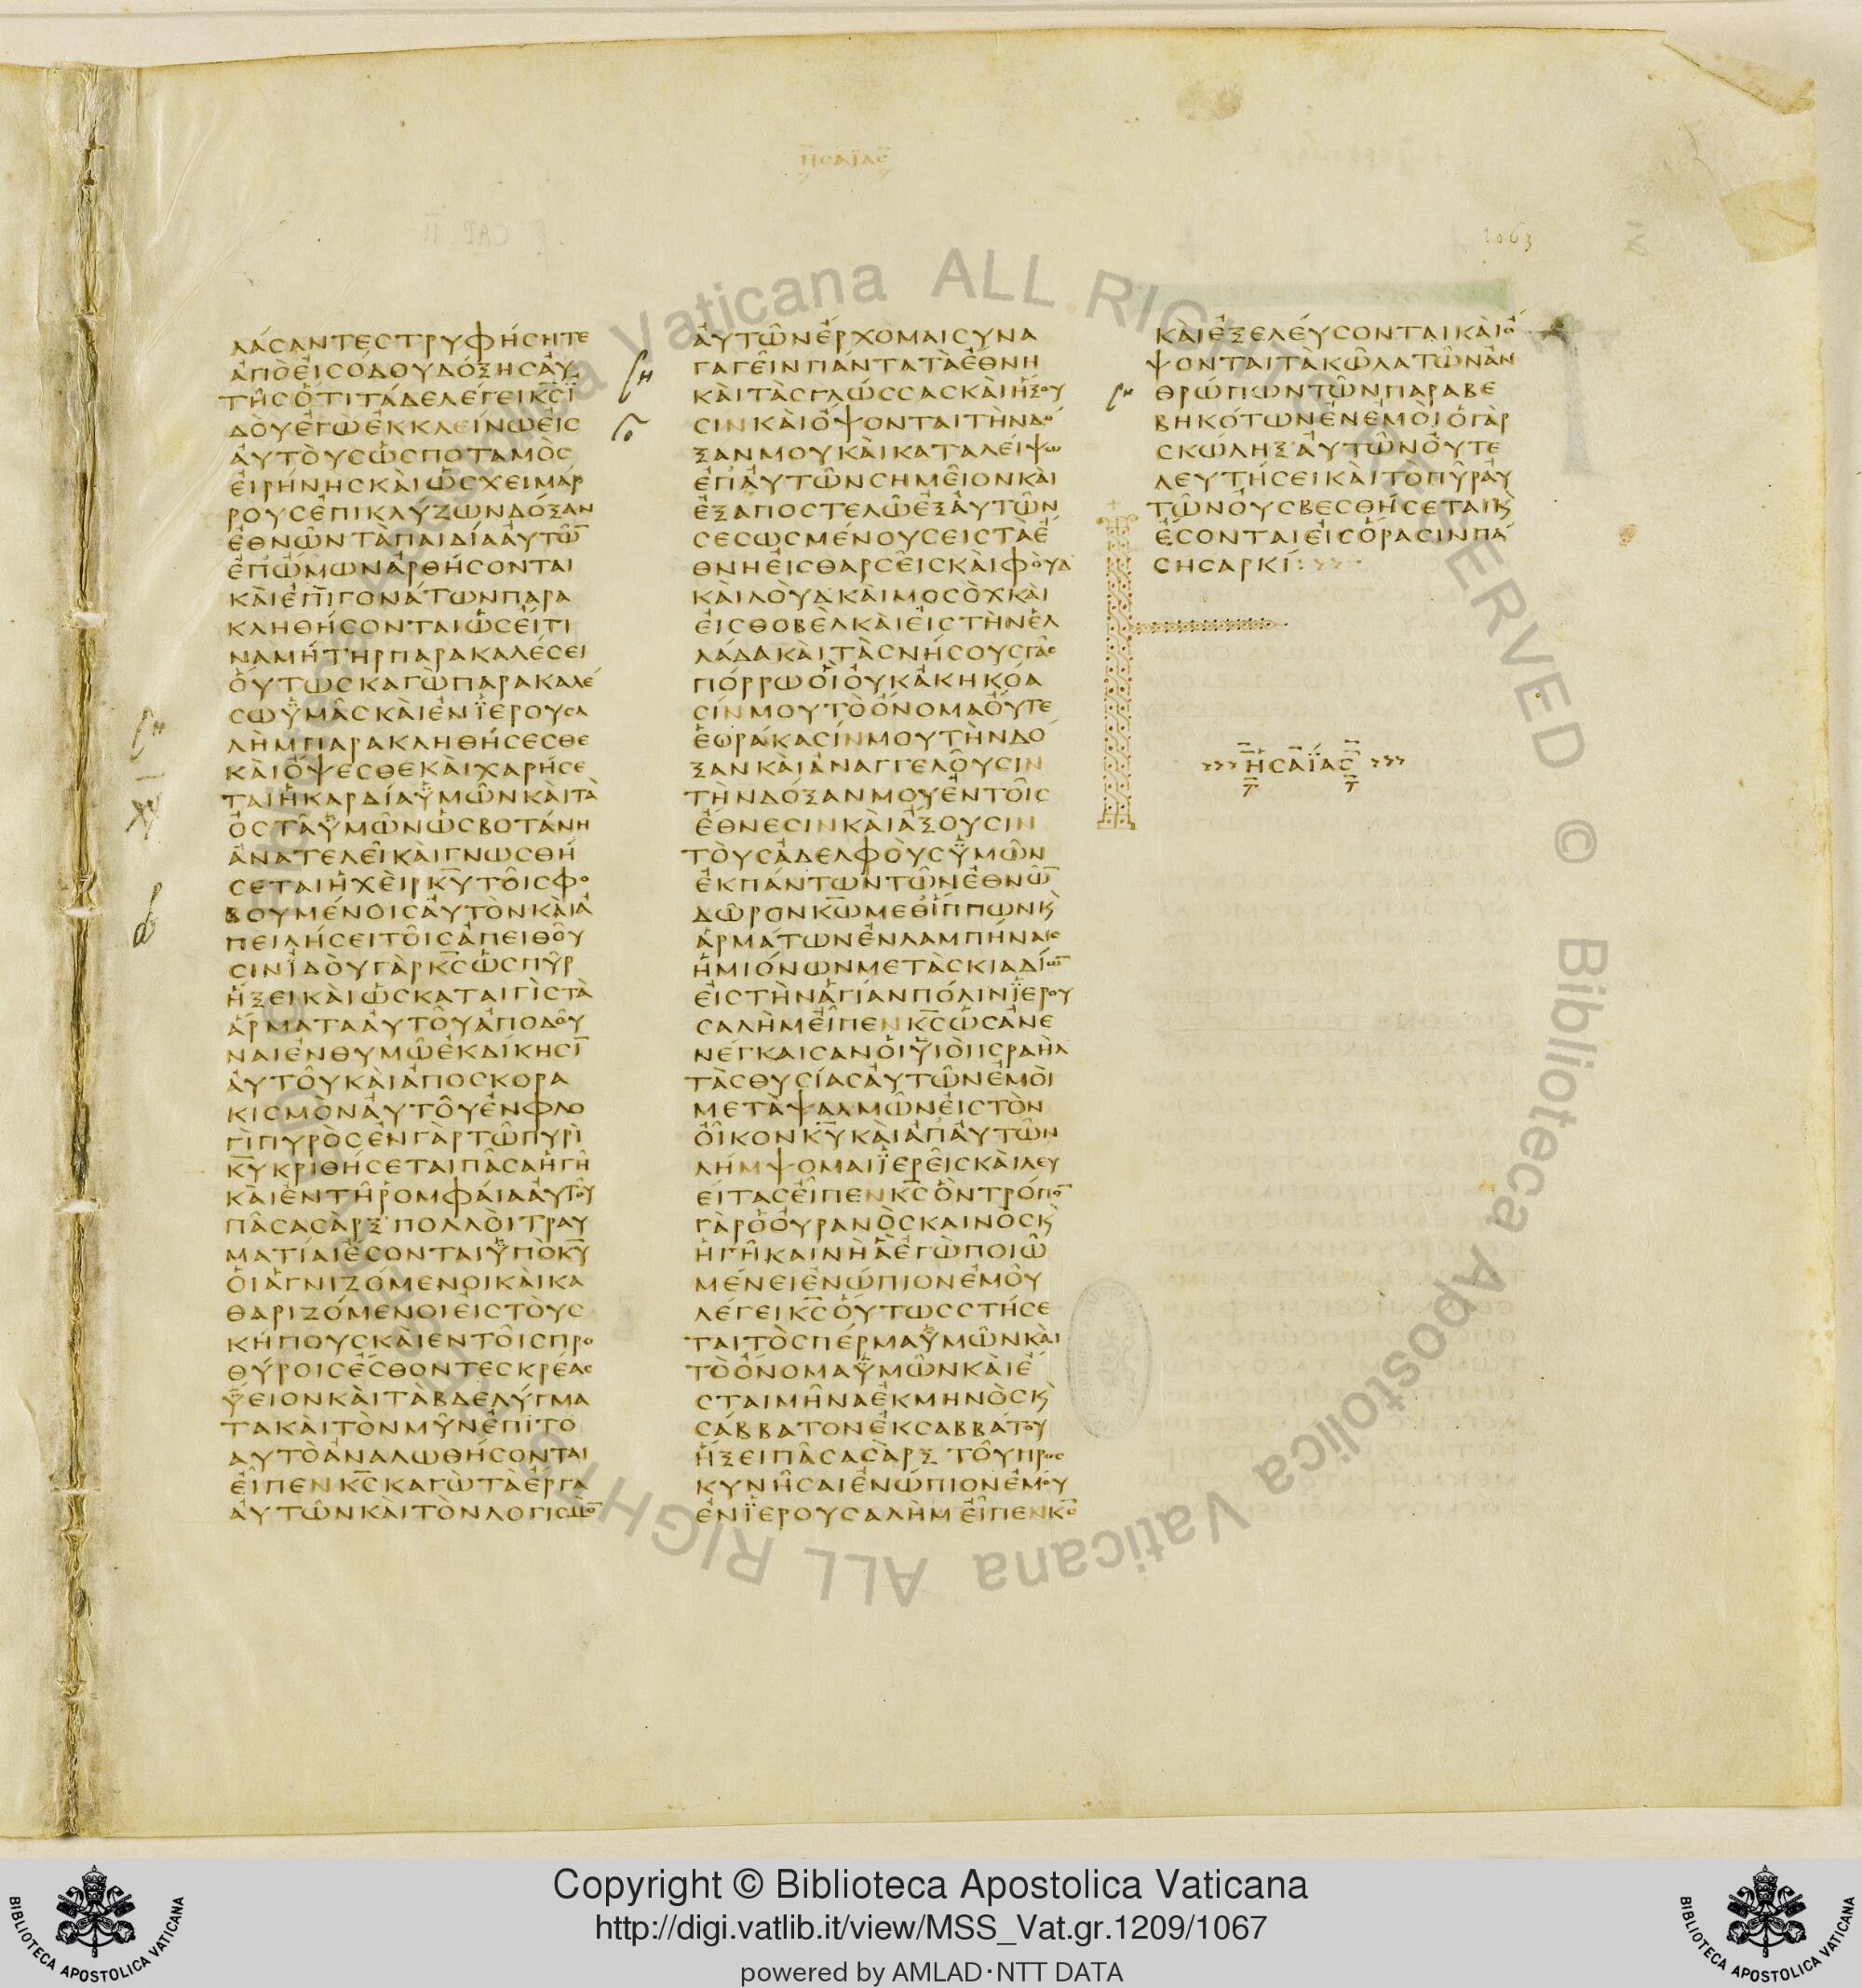 ΗΣΑΪΑΣ
1063
ΛΑΣΑΝΤΕΣΤΡΥΦΗΣΗΤΕ
ΑΠΟΕΙΣΟΔΟΥΔΟΞΗΣΑΥ
ΤΗΣΟΤΙΤΑΔΕΛΕΓΕΙΚΣΪ
ΔΟΥΕΓΩΕΚΚΛΕΙΝΩΕΙΣ
ΑΥΤΟΥΣΩΣΠΟΤΑΜΟΣ
ΕΙΡΗΝΗΣΚΑΙΩΣΧΕΙΜΑΡ
ΡΟΥΣΕΠΙΚΛΥΖΩΝΔΟΞΑΝ
ΕΘΝΩΝΤΑΠΑΙΔΙΑΑΥΤΩ̅
ΕΠΩΜΩΝΑΡΘΗΣΟΝΤΑΙ
ΚΑΙΕΠΙΓΟΝΑΤΩΝΠΑΡΑ
ΚΛΗΘΗΣΟΝΤΑΙΩΣΕΙΤΙ
ΝΑΜΗΤΗΡΠΑΡΑΚΑΛΕΣΕΙ
ΟΥΤΩΣΚΑΓΩΠΑΡΑΚΑΛΕ
ΣΩΫΜΑΣΚΑΙΕΝΪΕΡΟΥΣΑ
ΛΗΜΠΑΡΑΚΛΗΘΗΣΕΣΘΕ
ΚΑΙΟΨΕΣΘΕΚΑΙΧΑΡΗΣΕ
ΤΑΙΗΚΑΡΔΙΑΫΜΩΝΚΑΙΤΑ
ΟΣΤΑΫΜΩΝΩΣΒΟΤΑΝΗ
ΑΝΑΤΕΛΕΙΚΑΙΓΝΩΣΘΗ
ΣΕΤΑΙΗΧΕΙΡΚΥΤΟΙΣΦΟ
ΒΟΥΜΕΝΟΙΣΑΥΤΟΝΚΑΙΑ
ΠΕΙΛΗΣΕΙΤΟΙΣΑΠΕΙΘΟΥ
ΣΙΝΪΔΟΥΓΑΡΚΣΩΣΠΥΡ
ΗΞΕΙΚΑΙΩΣΚΑΤΑΙΓΙΣΤΑ
ΑΡΜΑΤΑΑΥΤΟΥΑΠΟΔΟΥ
ΝΑΙΕΝΘΥΜΩΕΚΔΙΚΗΣΙ̅
ΑΥΤΟΥΚΑΙΑΠΟΣΚΟΡΑ
ΚΙΣΜΟΝΑΥΤΟΥΕΝΦΛΟ
ΓΙΠΥΡΟΣΕΝΓΑΡΤΩΠΥΡΙ
ΚΥΚΡΙΘΗΣΕΤΑΙΠΑΣΑΗΓΗ
ΚΑΙΕΝΤΗΡΟΜΦΑΙΑΑΥΤΟΥ
ΠΑΣΑΣΑΡΞΠΟΛΛΟΙΤΡΑΥ
ΜΑΤΙΑΙΕΣΟΝΤΑΙΫΠΟΚΥ
ΟΙΑΓΝΙΖΟΜΕΝΟΙΚΑΙΚΑ
ΘΑΡΙΖΟΜΕΝΟΙΕΙΣΤΟΥΣ
ΚΗΠΟΥΣΚΑΙΕΝΤΟΙΣΠΡΟ
ΘΥΡΟΙΣΕΣΘΟΝΤΕΣΚΡΕΑΣ
ΫΕΙΟΝΚΑΙΤΑΒΔΕΛΥΓΜΑ
ΤΑΚΑΙΤΟΝΜΥΝΕΠΙΤΟ
ΑΥΤΟΑΝΑΛΩΘΗΣΟΝΤΑΙ
ΕΙΠΕΝΚΣΚΑΓΩΤΑΕΡΓΑ
ΑΥΤΩΝΚΑΙΤΟΝΛΟΓΙΣΜΟ̅
ΑΥΤΩΝΕΡΧΟΜΑΙΣΥΝΑ
ΓΑΓΕΙΝΠΑΝΤΑΤΑΕΘΝΗ
ΚΑΙΤΑΣΓΛΩΣΣΑΣΚΑΙΗΞΟΥ
ΣΙΝΚΑΙΟΨΟΝΤΑΙΤΗΝΔΟ
ΞΑΝΜΟΥΚΑΙΚΑΤΑΛΕΙΨΩ
ΕΠΑΥΤΩΝΣΗΜΕΙΟΝΚΑΙ
ΕΞΑΠΟΣΤΕΛΩΕΞΑΥΤΩΝ
ΣΕΣΩΣΜΕΝΟΥΣΕΙΣΤΑΕ
ΘΝΗΕΙΣΘΑΡΣΕΙΣΚΑΙΦΟΥΔ
ΚΑΙΛΟΥΔΚΑΙΜΟΣΟΧΚΑΙ
ΕΙΣΘΟΒΕΛΚΑΙΕΙΣΤΗΝΕΛ
ΛΑΔΑΚΑΙΤΑΣΝΗΣΟΥΣΤΑΣ
ΠΟΡΡΩΟΙΟΥΚΑΚΗΚΟΑ
ΣΙΝΜΟΥΤΟΟΝΟΜΑΟΥΤΕ
ΕΩΡΑΚΑΣΙΝΜΟΥΤΗΝΔΟ
ΞΑΝΚΑΙΑΝΑΓΓΕΛΟΥΣΙΝ
ΤΗΝΔΟΞΑΝΜΟΥΕΝΤΟΙΣ
ΕΘΝΕΣΙΝΚΑΙΑΞΟΥΣΙΝ
ΤΟΥΣΑΔΕΛΦΟΥΣΫΜΩΝ
ΕΚΠΑΝΤΩΝΤΩΝΕΘΝΩ̅
ΔΩΡΟΝΚΩΜΕΘΙΠΠΩΝΚ
ΑΡΜΑΤΩΝΕΝΛΑΜΠΗΝΑΙΣ
ΗΜΙΟΝΩΝΜΕΤΑΣΚΙΑΔΙΩ̅
ΕΙΣΤΗΝΑΓΙΑΝΠΟΛΙΝΪΕΡΟΥ
ΣΑΛΗΜΕΙΠΕΝΚΣΩΣΑΝΕ
ΝΕΓΚΑΙΣΑΝΟΙΫΙΟΙΙΣΡΑΗΛ
ΤΑΣΘΥΣΙΑΣΑΥΤΩΝΕΜΟΙ
ΜΕΤΑΨΑΛΜΩΝΕΙΣΤΟΝ
ΟΙΚΟΝΚΥΚΑΙΑΠΑΥΤΩΝ
ΛΗΜΨΟΜΑΙΪΕΡΕΙΣΚΑΙΛΕΥ
ΕΙΤΑΣΕΙΠΕΝΚΣΟΝΤΡΟΠΟ̅
ΓΑΡΟΟΥΡΑΝΟΣΚΑΙΝΟΣΚ
ΗΓΗΚΑΙΝΗΑΕΓΩΠΟΙΩ
ΜΕΝΕΙΕΝΩΠΙΟΝΕΜΟΥ
ΛΕΓΕΙΚΣΟΥΤΩΣΣΤΗΣΕ
ΤΑΙΤΟΣΠΕΡΜΑΫΜΩΝΚΑΙ
ΤΟΟΝΟΜΑΫΜΩΝΚΑΙΕ
ΣΤΑΙΜΗΝΑΕΚΜΗΝΟΣΚ
ΣΑΒΒΑΤΟΝΕΚΣΑΒΒΑΤΟΥ
ΗΞΕΙΠΑΣΑΣΑΡΞΤΟΥΠΡΟΣ
ΚΥΝΗΣΑΙΕΝΩΠΙΟΝΕΜΟΥ
ΕΝΪΕΡΟΥΣΑΛΗΜΕΙΠΕΝΚΣ
ΚΑΙΕΞΕΛΕΥΣΟΝΤΑΙΚΑΙΟ
ΨΟΝΤΑΙΤΑΚΩΛΑΤΩΝΑΝ
ΘΡΩΠΩΝΤΩΝΠΑΡΑΒΕ
ΒΗΚΟΤΩΝΕΝΕΜΟΙΟΓΑΡ
ΣΚΩΛΗΞΑΥΤΩΝΟΥΤΕ
ΛΕΥΤΗΣΕΙΚΑΙΤΟΠΥΡΑΥ
ΤΩΝΟΥΣΒΕΣΘΗΣΕΤΑΙΚ
ΕΣΟΝΤΑΙΕΙΣΟΡΑΣΙΝΠΑ
ΣΗΣΑΡΚΙ:
ΗΣΑΪΑΣ
Copyright © Biblioteca Apostolica Vaticana
http://digi.vatlib.it/view/MSS_Vat.gr.1209/1067
powered by AMLAD·NTT DATA
BIBLIOTECA APOSTOLICA VATICANA
BIBLIOTECA APOSTOLICA VATICANA